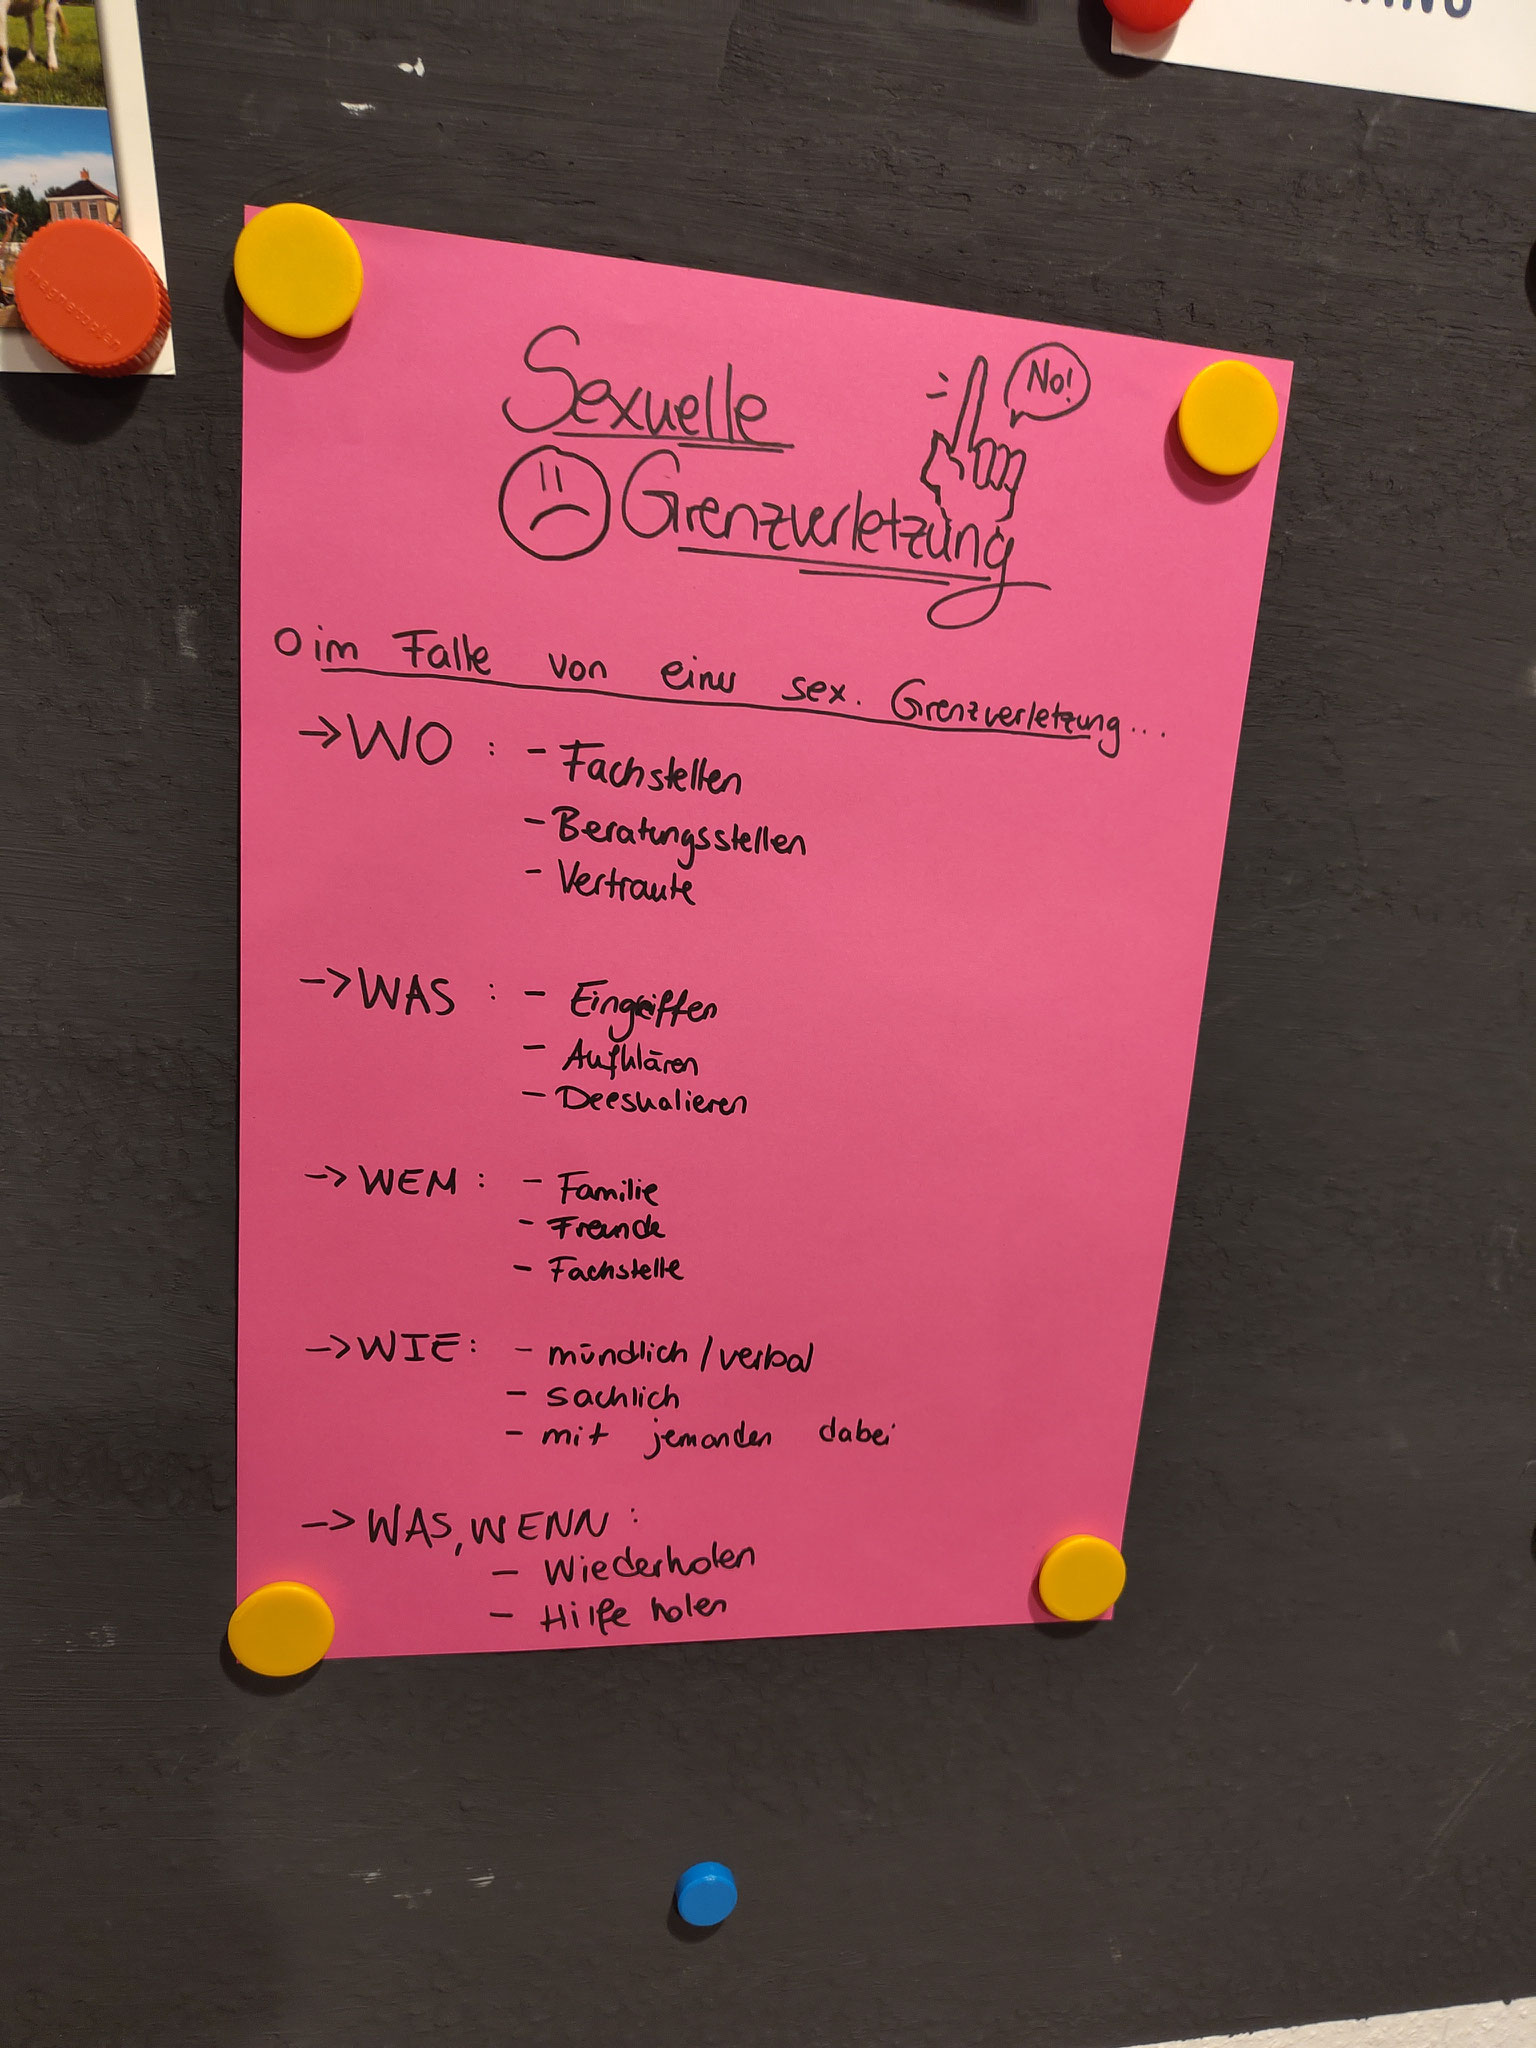 Sexuelle
No!
Grenzverletzung
im Falle von einer sex. Grenzverletzung...
→ WO : - Fachstellen
- Beratungsstellen
- Vertraute
→ WAS : - Eingreiffen
- Aufklären
- Deeskalieren
→ WEM : - Familie
- Freunde
- Fachstelle
→ WIE : - mündlich / verbal
- sachlich
- mit jemanden dabei
→ WAS, WENN :
- Wiederholen
- Hilfe holen